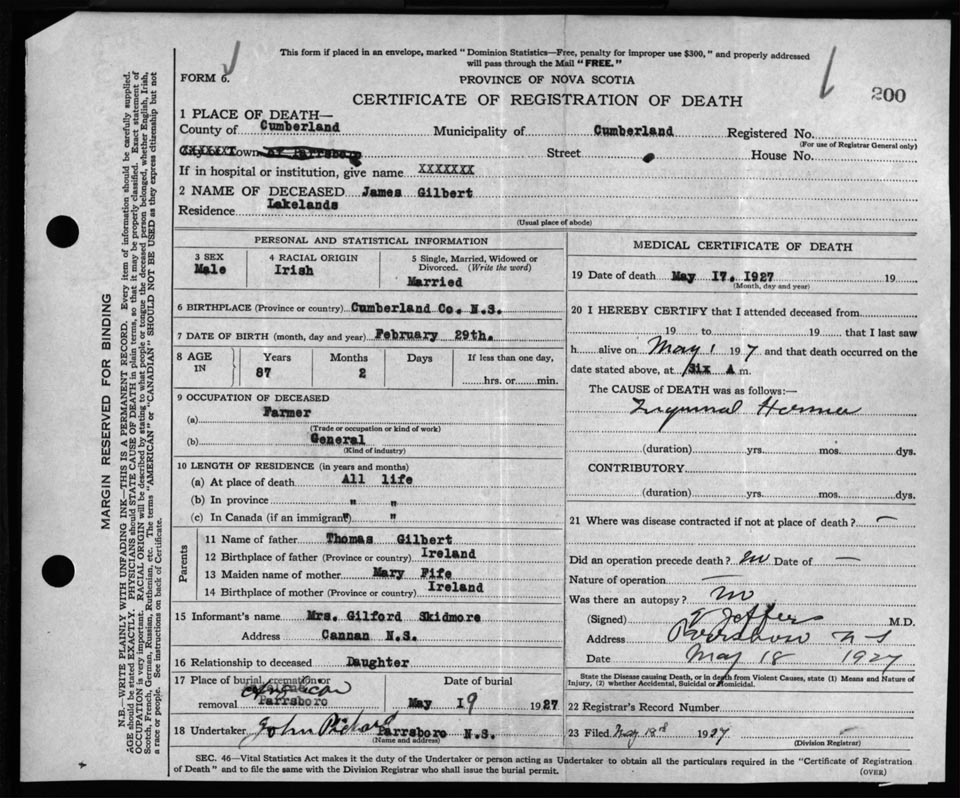 This form if placed in an envelope, marked "Dominion Statistics—Free, penalty for improper use $300," and properly addressed
will pass through the Mail "FREE."
FORM 6.
PROVINCE OF NOVA SCOTIA
200
CERTIFICATE OF REGISTRATION OF DEATH
1 PLACE OF DEATH—
County of Cumberland Municipality of Cumberland Registered No.
(For use of Registrar General only)
Town of Parrsboro Street House No.
If in hospital or institution, give name XXXXXXX
2 NAME OF DECEASED James Gilbert
Residence Lakelands
(Usual place of abode)
PERSONAL AND STATISTICAL INFORMATION
3 SEX 4 RACIAL ORIGIN 5 Single, Married, Widowed or
Divorced. (Write the word)
Male Irish Married
6 BIRTHPLACE (Province or country) Cumberland Co. N.S.
7 DATE OF BIRTH (month, day and year) February 29th.
8 AGE IN Years Months Days If less than one day,
87 2 hrs. or min.
9 OCCUPATION OF DECEASED
(a) Farmer
(Trade or occupation or kind of work)
(b) General
(Kind of industry)
10 LENGTH OF RESIDENCE (in years and months)
(a) At place of death All life
(b) In province " "
(c) In Canada (if an immigrant) " "
Parents
11 Name of father Thomas Gilbert
12 Birthplace of father (Province or country) Ireland
13 Maiden name of mother Mary Fife
14 Birthplace of mother (Province or country) Ireland
15 Informant's name Mrs. Gilford Skidmore
Address Cannan N.S.
16 Relationship to deceased Daughter
17 Place of burial, cremation or Date of burial
removal Parrsboro May 19 1927
18 Undertaker John Parrsboro N.S.
(Name and address)
MEDICAL CERTIFICATE OF DEATH
19 Date of death May 17. 1927 19
(Month, day and year)
20 I HEREBY CERTIFY that I attended deceased from
19 to 19 that I last saw
h alive on May 1 1927 and that death occurred on the
date stated above, at Six A m.
The CAUSE of DEATH was as follows:—
Inguinal Hernia
(duration) yrs. mos. dys.
CONTRIBUTORY
(duration) yrs. mos. dys.
21 Where was disease contracted if not at place of death? —
Did an operation precede death? no Date of —
Nature of operation —
Was there an autopsy? no
(Signed) Jeffers M.D.
Address Parrsboro N S
Date May 18 1927
State the Disease causing Death, or in death from Violent Causes, state (1) Means and Nature of
Injury, (2) whether Accidental, Suicidal or Homicidal.
22 Registrar's Record Number
23 Filed May 18th 1927
(Division Registrar)
SEC. 46—Vital Statistics Act makes it the duty of the Undertaker or person acting as Undertaker to obtain all the particulars required in the "Certificate of Registration
of Death" and to file the same with the Division Registrar who shall issue the burial permit.
(OVER)
MARGIN RESERVED FOR BINDING
N.B.—WRITE PLAINLY WITH UNFADING INK—THIS IS A PERMANENT RECORD. Every item of information should be carefully supplied.
AGE should be stated EXACTLY. PHYSICIANS should STATE CAUSE OF DEATH in plain terms, so that it may be properly classified. Exact statement of
OCCUPATION is very important. RACIAL ORIGIN will be described by stating to what people or tongue the deceased person belonged, whether English, Irish,
Scotch, French, German, Russian, Ruthenian, etc. The terms "AMERICAN" or "CANADIAN" SHOULD NOT BE USED as they express citizenship but not
a race or people. See instructions on back of Certificate.